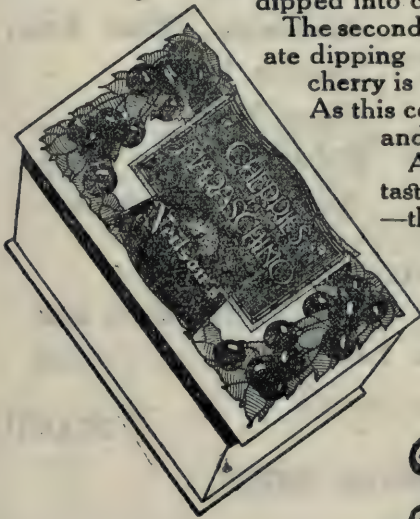 dipped into c
The second
ate dipping
cherry is
As this co
and
A
tast
—th
CHERRIES
MARASCHINO
Neilson's